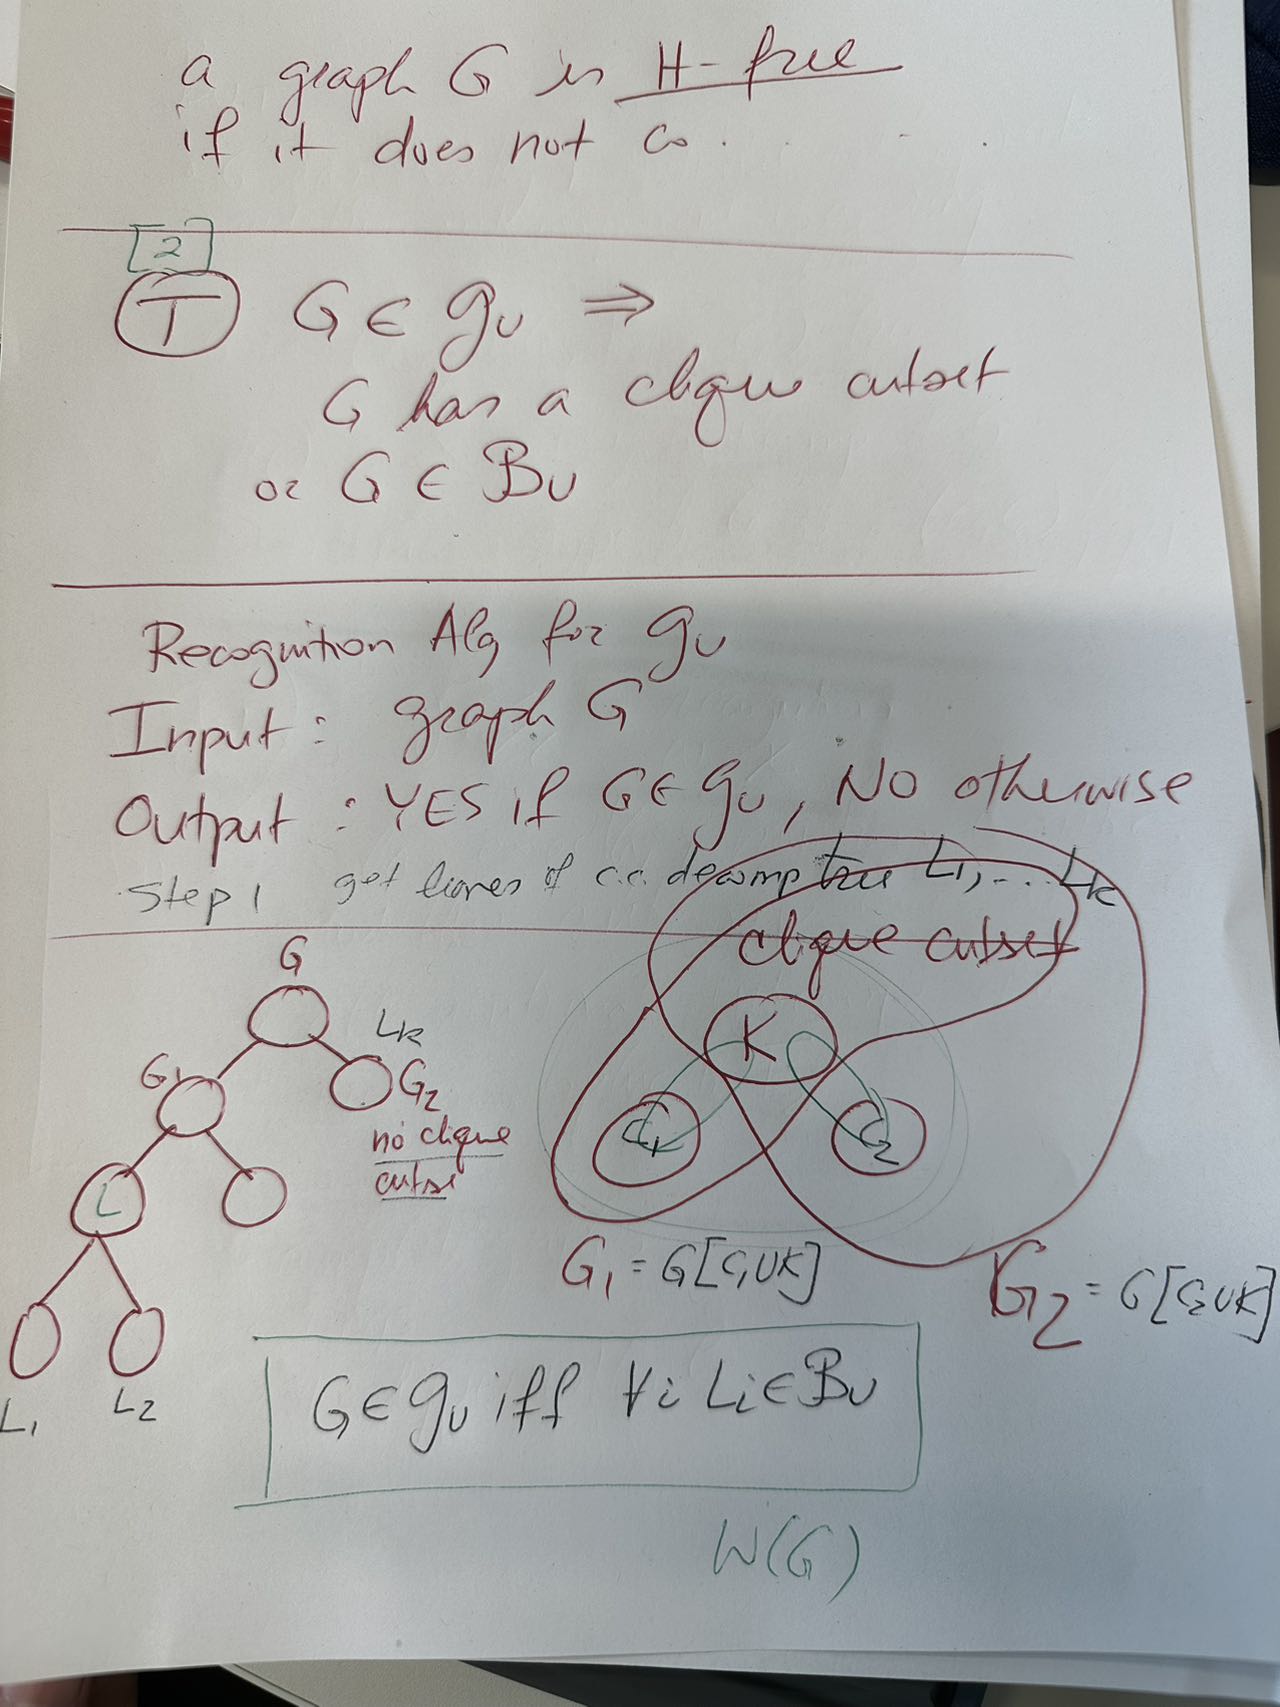 a graph G is H-free
if it does not co . . . . .
[2]
T G ∈ 𝒢U ⇒
G has a clique cutset
or G ∈ ℬU
Recognition Alg for 𝒢U
Input : graph G
Output : YES if G ∈ 𝒢U, NO otherwise
Step 1 get leaves of c.c. decomp tree L1, ... Lk
clique cutset
G
Lk
K
G1
G2
no clique
cutse
C1
C2
L
G1 = G[C1∪K]
G2 = G[C2∪K]
G ∈ 𝒢U iff ∀i Li ∈ ℬU
L1
L2
W(G)